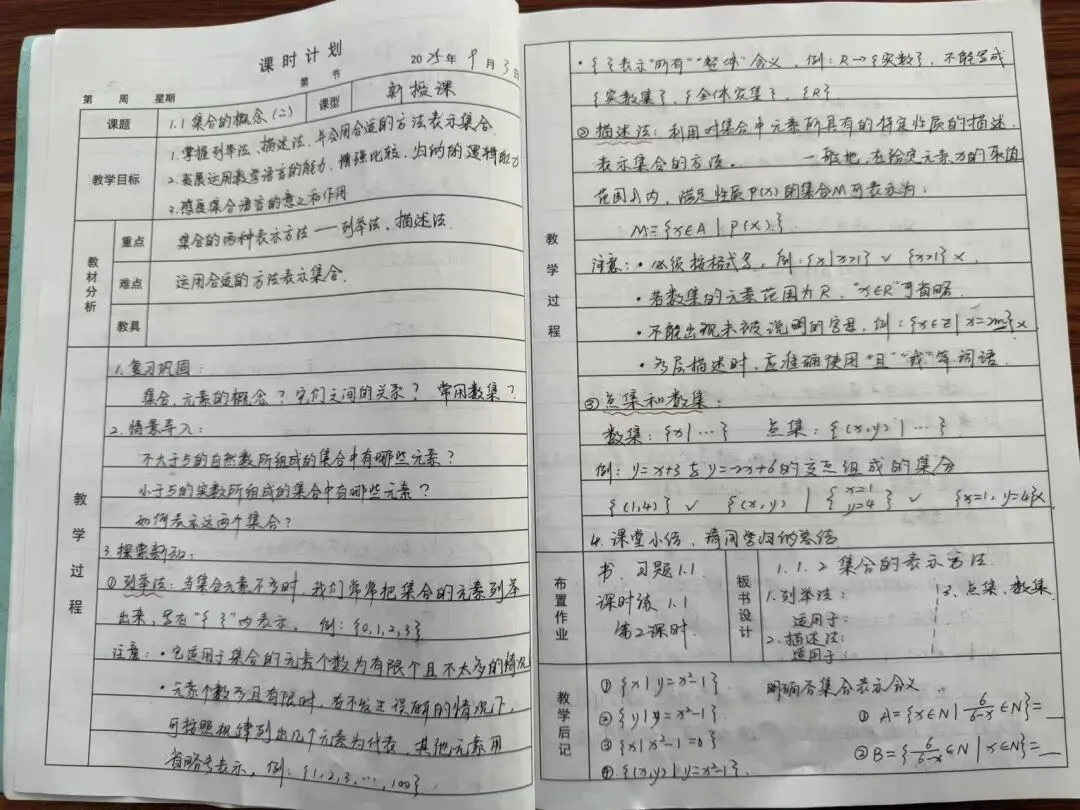 课时计划
2025年9月3日
第 书
第 周 星期
课题 1.1集合的概念(二) 课型 新授课
教学目标
1.掌握列举法、描述法,并会用合适的方法表示集合.
2.发展运用数学语言的能力,增强比较、归纳的逻辑能力
3.感受集合语言的意义和作用
教材分析
重点 集合的两种表示方法——列举法、描述法.
难点 运用合适的方法表示集合.
教具
教学过程
1.复习巩固:
集合,元素的概念?它们之间的关系?常用数集?
2.情景导入:
不大于5的自然数所组成的集合中有哪些元素?
小于5的实数所组成的集合中有哪些元素?
如何表示这两个集合?
3.探索新知:
①列举法:当集合元素不多时,我们常常把集合的元素列举
出来,写在“{ }”内表示. 例:{0,1,2,3}
注意:·它适用于集合的元素个数为有限个且不太多的情况
·元素个数多且有限时,在不发生误解的情况下,
可按照规律列出几个元素为代表,其他元素用
省略号表示. 例:{1,2,3,…,100}
教学过程
·{ }表示“所有”“整体”含义,例:R→{实数},不能写成
{实数集},{全体实集},{R}
②描述法:利用对集合中元素所具有的特定性质的描述,
表示集合的方法. 一般地,在给定元素x的取值
范围A内,满足性质P(x)的集合M可表示为:
M={x∈A | P(x)}
注意:·必须按格式写,例:{x|x>1} √ {x>1} ×.
·若数集的元素范围为R,“x∈R”可省略.
·不能出现未被说明的字母,例:{x∈Z | x=2m} ×
·多层描述时,应准确使用“且”“或”等词语.
③点集和数集:
数集:{x|…} 点集:{(x,y)|…}
例:y=x+3与y=-2x+6的交点组成的集合
{(1,4)} √ {(x,y) | { x=1 y=4 } √ {x=1, y=4}×
4.课堂小结,请同学归纳总结.
布置作业
书.习题1.1
课时练 1.1
第2课时.
板书设计
1.1.2 集合的表示方法.
1.列举法: 3.点集、数集
适用于:
2.描述法:
适用于:
教学后记
①{x|y=x²-1}. 明确各集合表示含义
②{y|y=x²-1}. ①A={x∈N | 6/(6-x)∈N}=__
③{x|x²-1=0} ②B={6/(6-x)∈N | x∈N}=__
④.{(x,y)|y=x²-1}.